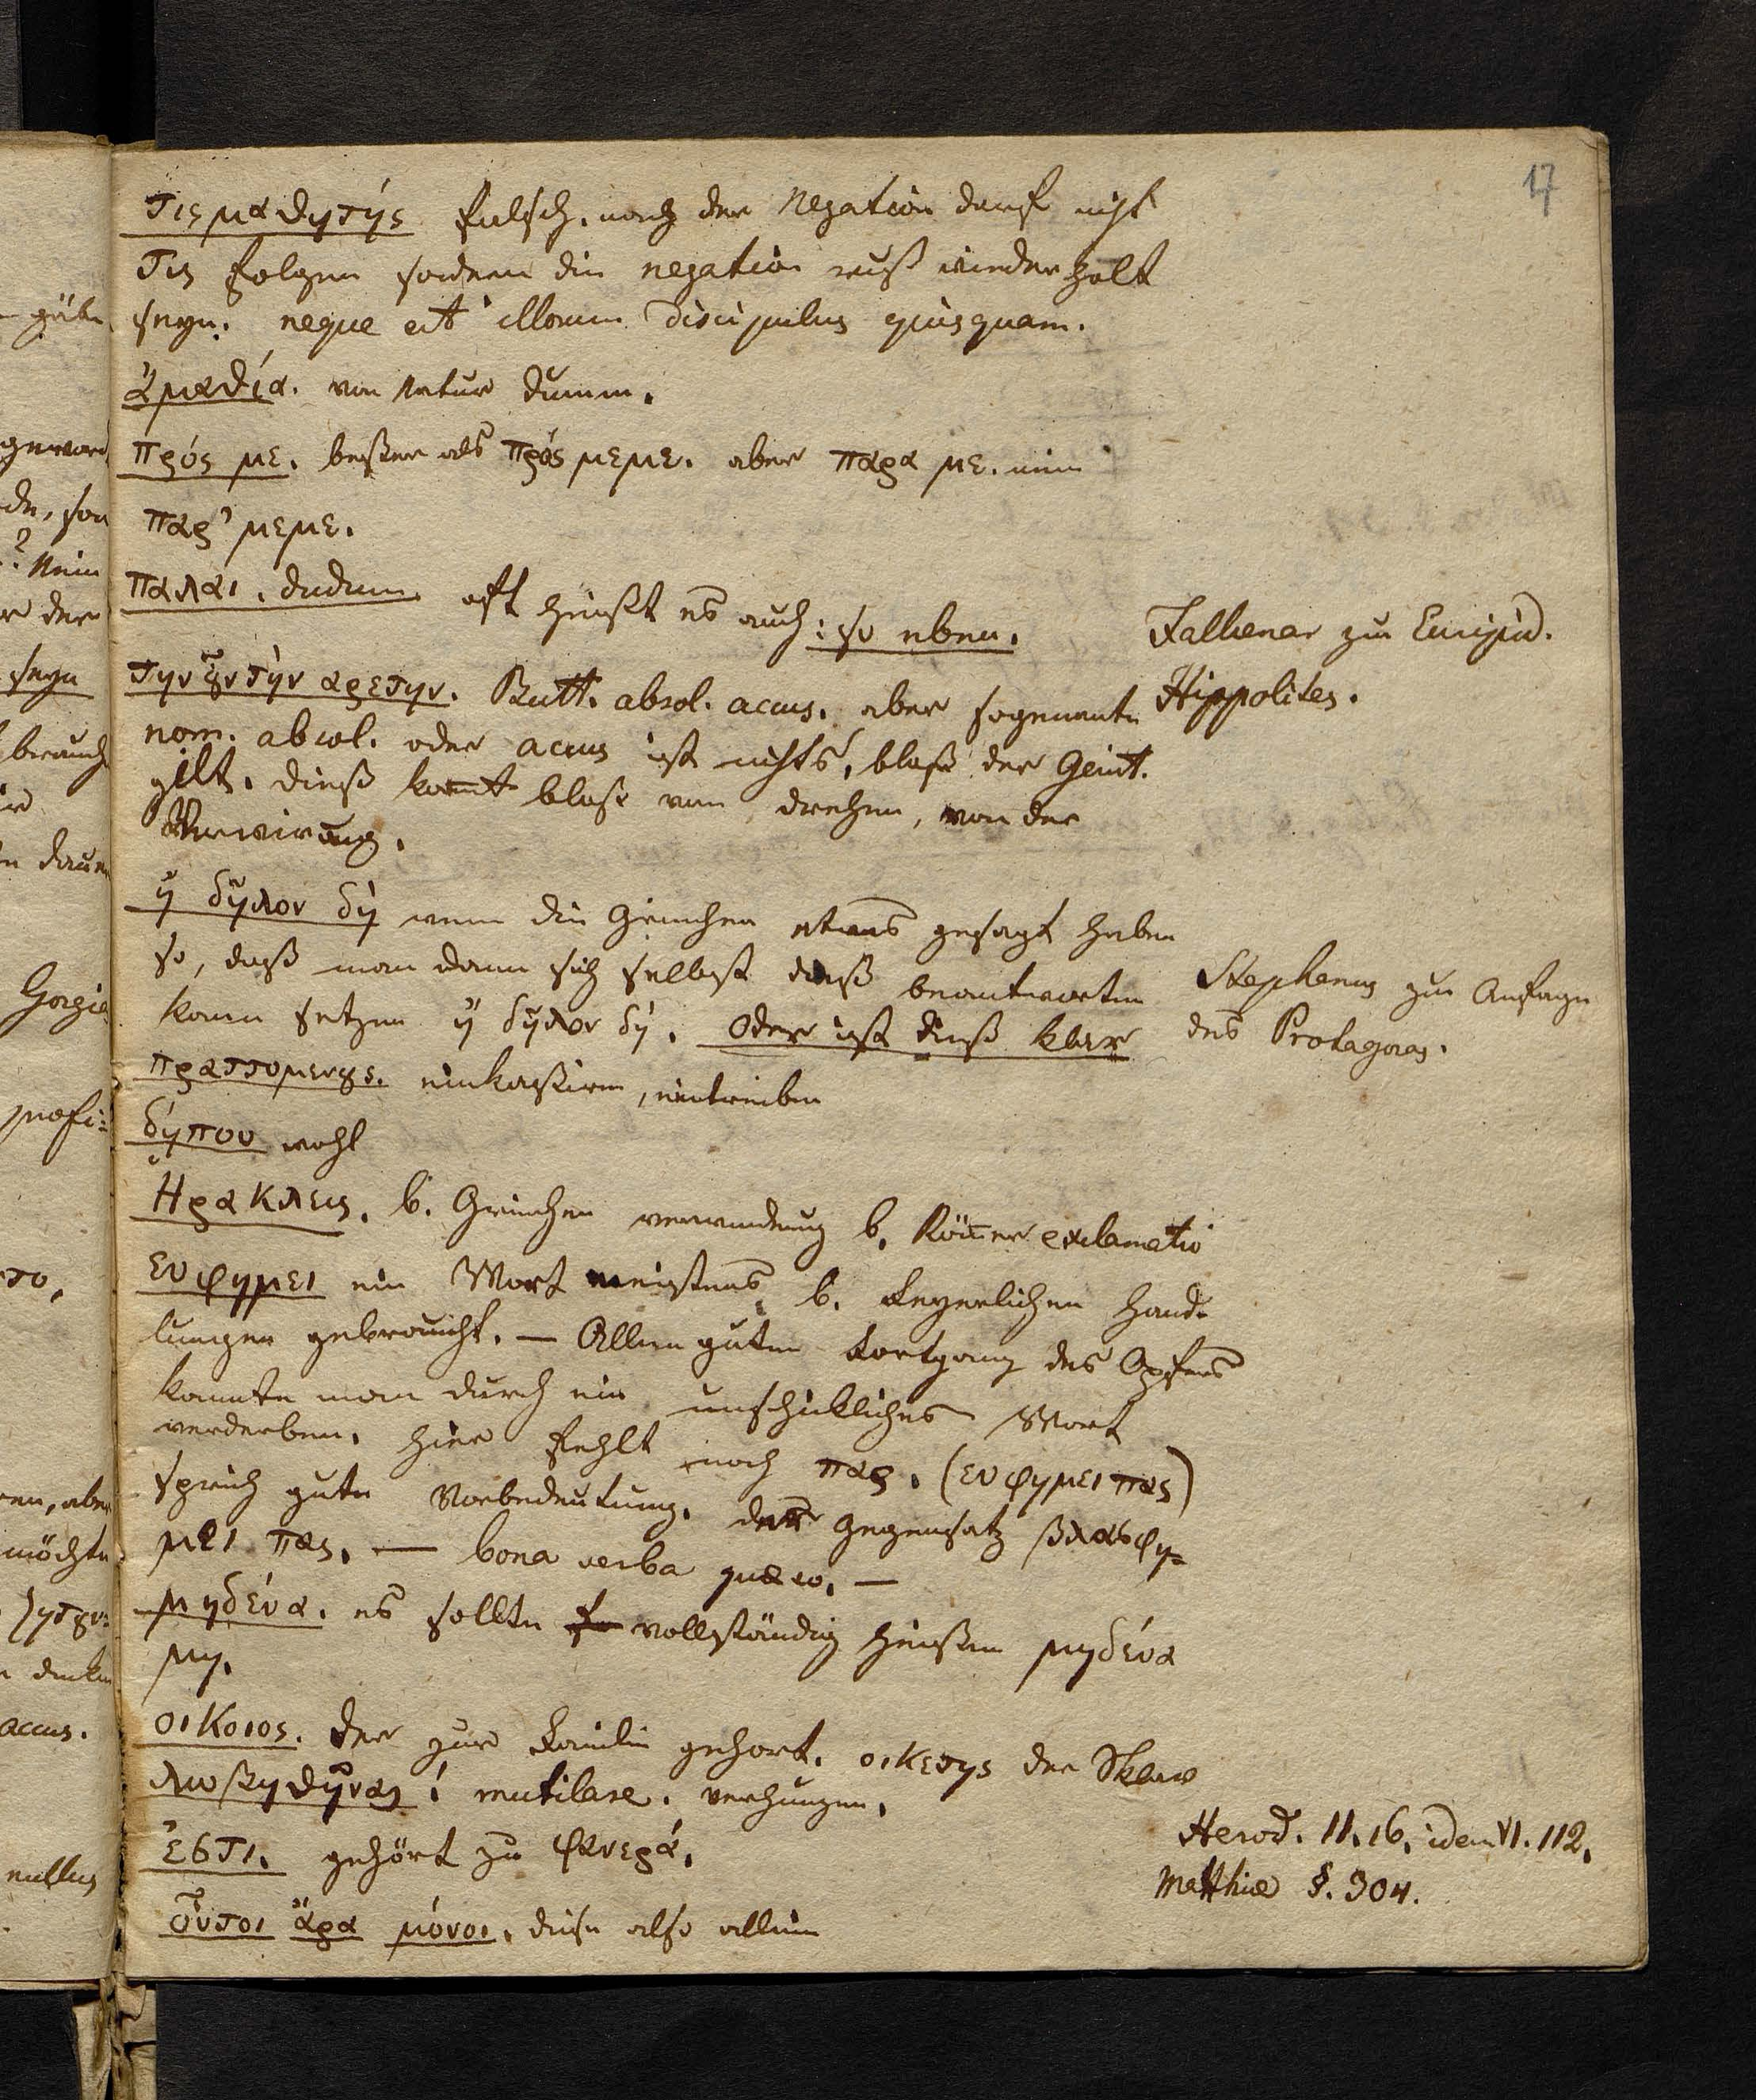 17
τις μαθητής falsch. nach der Negation darf nicht
τις folgen sondern die negation muß wiederholt
seyn. neque est illorum discipulus quisquam.
ἀμαθία. von Natur dumm.
πρός με. besser als πρός μεμε. aber παρα με. nie
παρ' μεμε.
παλαι. dudum oft heißt es auch: so eben.
Falkenar zu Euripid.
Hippolites.
την ȣν την αρετην. Butt. absol. accus. aber sogenante
nom. absol. oder accus ist nichts, bloß der Genit.
gilt. dieß komt bloß vom drehen, von der
Verwirung.
ἢ δῆλον δὴ wenn die Griechen etwas gesagt haben
so, daß man dann sich selbst dieß beantworten
kann setzen ἢ δῆλον δὴ. Oder ist dieß klar
Stephanus zu Anfange
des Protagoras.
πραττομενȣς. einkassiren, eintreiben
δήπου wohl
Ηρακλεις. b. Griechen verwunderung b. Römer exclamatio
ευφημει ein Wort meistens b. feyerlichen Hand-
lungen gebraucht. — Allen guten Fortgang des Opfers
konnte man durch ein unschickliches Wort
verderben. hier fehlt noch πας. (ευφημει πας)
sprich gute Vorbedeutung. der Gegensatz βλασφη-
μει πας. — bona verba quaeso. —
μηδένα. es sollte vollständig heißen μηδένα
μη.
οικοιος. der zur Familie gehort. οικετης der Sklav
λωβηθῆναι mutilare. verhunzen.
ἐστι. gehört zu φανερά.
Herod. II. 16. idem VI. 112.
Matthiae §. 304.
οὗτοι ἄρα μόνοι. diese also allein